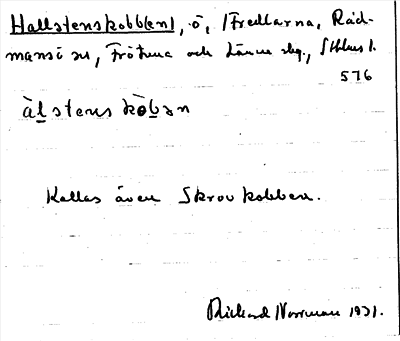 Hallstenskobb(en), ö, Fredlarna, Råd-
mansö sn, Frötuna och Länna skg., Sthlms l.
576
àlstens kòbən
Kallas även Skrovkobben.
Rickard Norrman 1931.